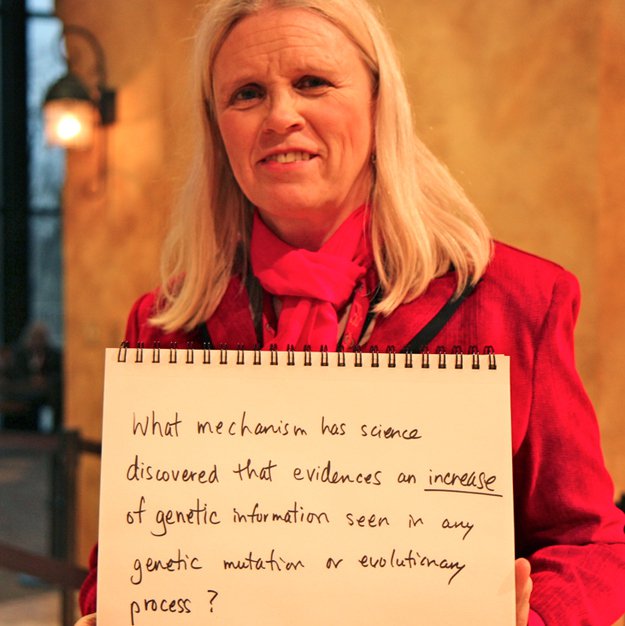 What mechanism has science
discovered that evidences an increase
of genetic information seen in any
genetic mutation or evolutionary
process?